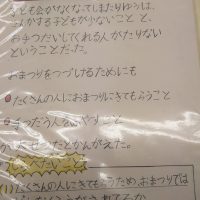 子ども会がなくなってしまったりゆうは、
さんかする子どもが少ないこと と、
お手つだいしてくれる人がたりない
ということだった。
おまつりをつづけるためにも
●たくさんの人におまつりにきてもらうこと
●手つだう人をふやすこと
がたいせつだとかんがえた。
(1)たくさんの人にきてもらうため、おまつりでは